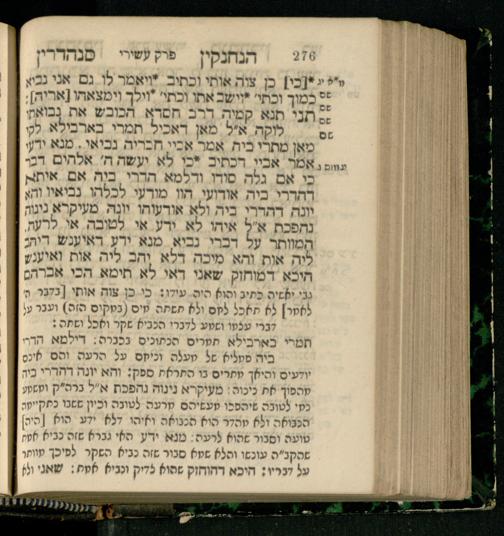 276 הנחנקין פרק עשירי סנהדרין
*[כי] כן צוה אותי וכתיב *ויאמר לו גם אני נביא
כמוך וכתי׳ *וישב אתו וכתי׳ *וילך וימצאהו [אריה]:
תני תנא קמיה דרב חסדא הכובש את נבואתו
לוקה א״ל מאן דאכיל תמרי בארבילא לקי
מאן מתרי ביה אמר אביי חבריה נביאי. מנא ידעי
אמר אביי דכתיב *כי לא יעשה ה׳ אלהים דבר
כי אם גלה סודו ודלמא הדרי ביה אם איתא
דהדרי ביה אודועי הוו מודעי לכלהו נביאי והא
יונה דהדרי ביה ולא אודעוהו יונה מעיקרא נינוה
נהפכת א״ל איהו לא ידע אי לטובה או לרעה.
המוותר על דברי נביא מנא ידע דאיענש דיהב
ליה אות והא מיכה דלא יהב ליה אות ואיענש
היכא דמוחזק שאני דאי לא תימא הכי אברהם
גבי יאשיה כתיב והוא היה עידו: כי כן צוה אותי [בדבר ה׳
לאמר] לא תאכל לחם ולא תשתה מים (במקום הזה) ועבר על
דברי עצמו ושמע לדברי הנביא שקר ואכל ושתה:
תמרי בארבילא תמרים הכתובים בכברה: דילמא הדרי
ביה פמליא של מעלה וניחם על הרעה והם אינם
יודעים והיאך מתרים בו התראת ספק: והא יונה דהדרי ביה
מהפוך את נינוה: מעיקרא נינוה נהפכת א״ל ברה״ק ומשמע
נמי לטובה שיהפכו מעשיהם מרעה לטובה וכיון ששבו נתקיימה
הנבואה ולא מהדר הוא הנבואה ואיהו דלא ידע הוא [היה]
טועה וסבור שהוא לרעה: מנא ידע האי גברא שזה נביא אמת
שהקב״ה עונשו והלא שמא סבור שזה נביא השקר לפיכך מוותר
על דבריו: היכא דהוחזק שהוא צדיק ונביא אמת: שאני ולא
מ״א יג
שם
שם
שם
עמוס ג